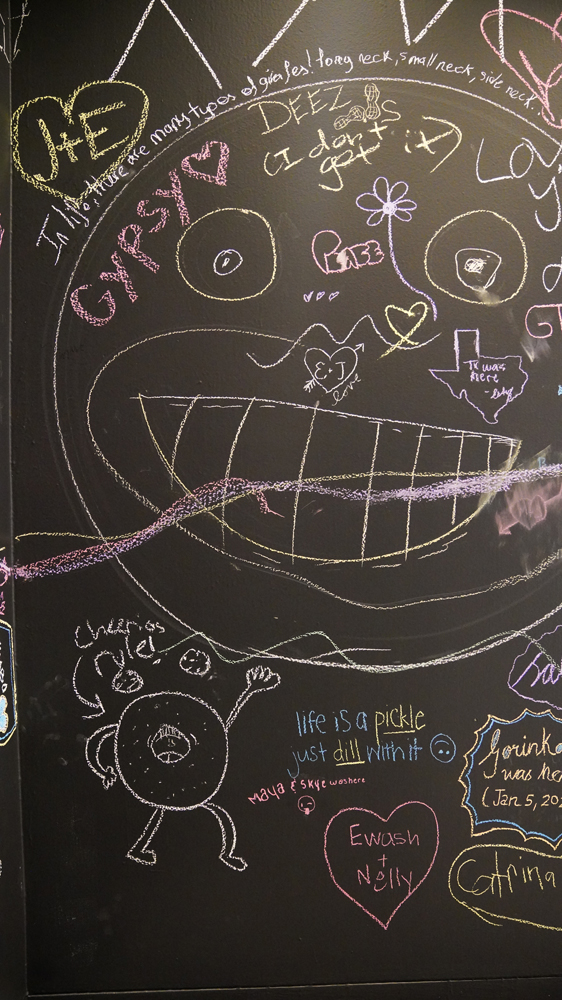 In life, there are many types of giraffes! long neck, small neck, side neck.
J+E
DEEZ
(I don't
get it)
GYPSY
E+J
love
TX was
here
Cheerios
life is a pickle
just dill with it
Maya & Skye was here
Ewash
+
Nelly
was he
(Jan 5, 20
Catrina